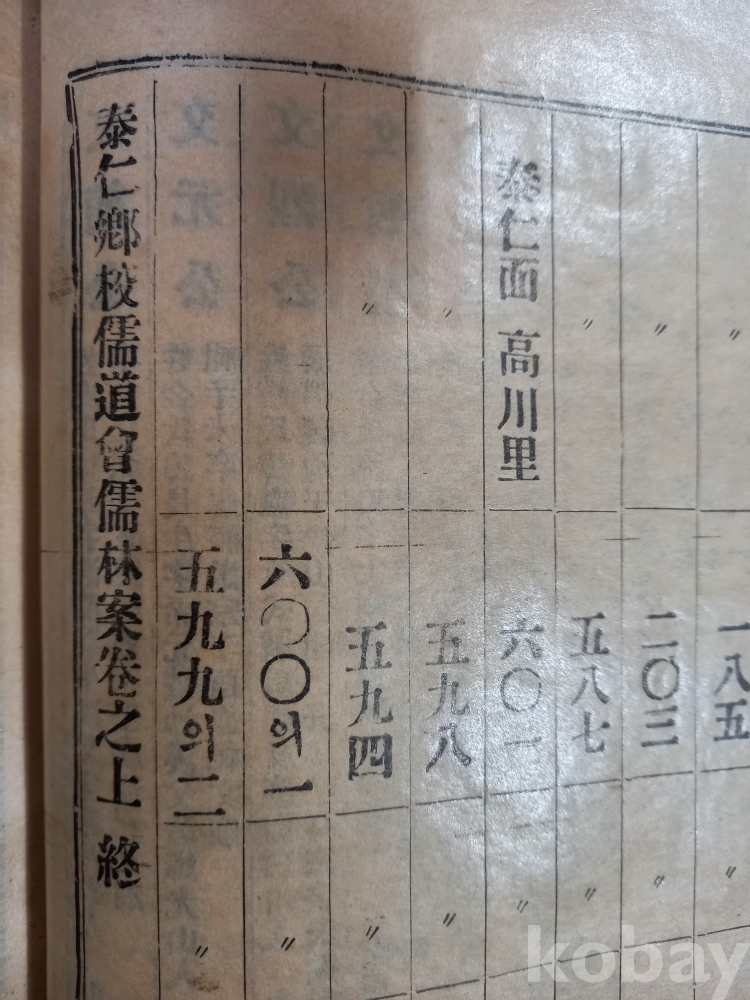 〃 一八五 〃
〃 二〇三 〃
〃 五八七 〃
泰仁面 高川里 六〇一 〃
〃 五九八 〃
〃 五九四 〃
六〇〇의一 〃
五九九의二 〃
泰仁鄕校儒道會儒林案卷之上 終
kobay